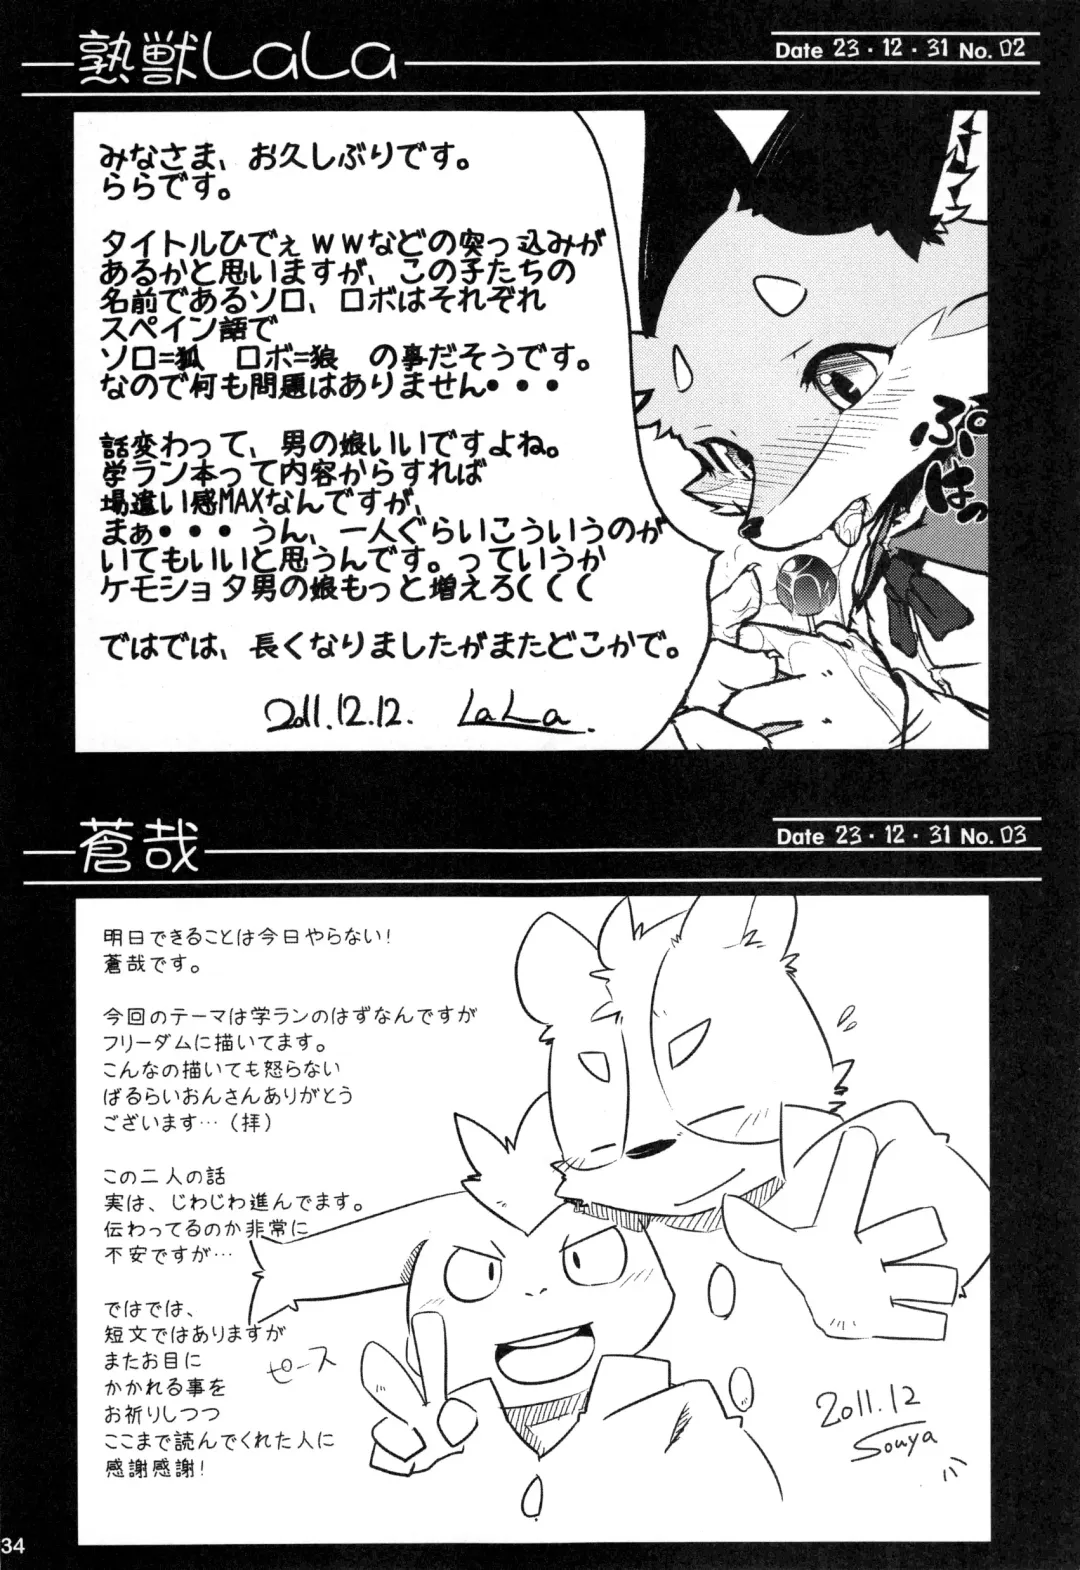 熟獣LaLa
Date 23・12・31 No. 02
みなさま、お久しぶりです。
ららです。
タイトルひでぇｗｗなどの突っ込みが
あるかと思いますが、この子たちの
名前であるソロ、ロボはそれぞれ
スペイン語で
ソロ=狐 ロボ=狼 の事だそうです。
なので何も問題はありません・・・
話変わって、男の娘いいですよね。
学ラン本って内容からすれば
場違い感MAXなんですが、
まぁ・・・うん、一人ぐらいこういうのが
いてもいいと思うんです。っていうか
ケモショタ男の娘もっと増えろ(((
ではでは、長くなりましたがまたどこかで。
2011.12.12. LaLa
ぷはっ
蒼哉
Date 23・12・31 No. 03
明日できることは今日やらない!
蒼哉です。
今回のテーマは学ランのはずなんですが
フリーダムに描いてます。
こんなの描いても怒らない
ばるらいおんさんありがとう
ございます…（拝）
この二人の話
実は、じわじわ進んでます。
伝わってるのか非常に
不安ですが…
ではでは、
短文ではありますが
またお目に
かかれる事を
お祈りしつつ
ここまで読んでくれた人に
感謝感謝!
ピース
2011.12
Souya
34